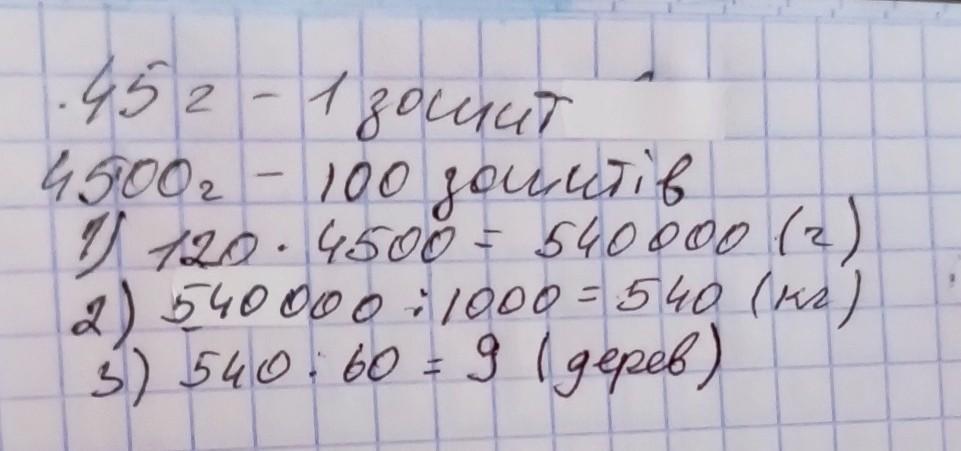 45 г - 1 зошит
4500г - 100 зошитів
1) 120 · 4500 = 540000 (г)
2) 540000 : 1000 = 540 (кг)
3) 540 : 60 = 9 (дерев)